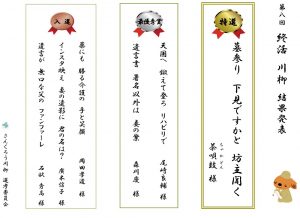 第八回 終活 川柳 結果発表
特選
墓参り 下見ですかと 坊主聞く
茶唄鼓 様
最優秀賞
天国へ 鍛えて登ろ リハビリで
尾崎良輔 様
遺言書 署名以外は 妻の筆
森川慶 様
入選
薬にも 勝る介護の 手と笑顔
岡田孝道 様
インスタ映え 妻の遺影に 君の名は?
廣本信子 様
遺言が 無口な父の ファンファーレ
石獣 秀馬 様
さんくろう川柳 選考委員会